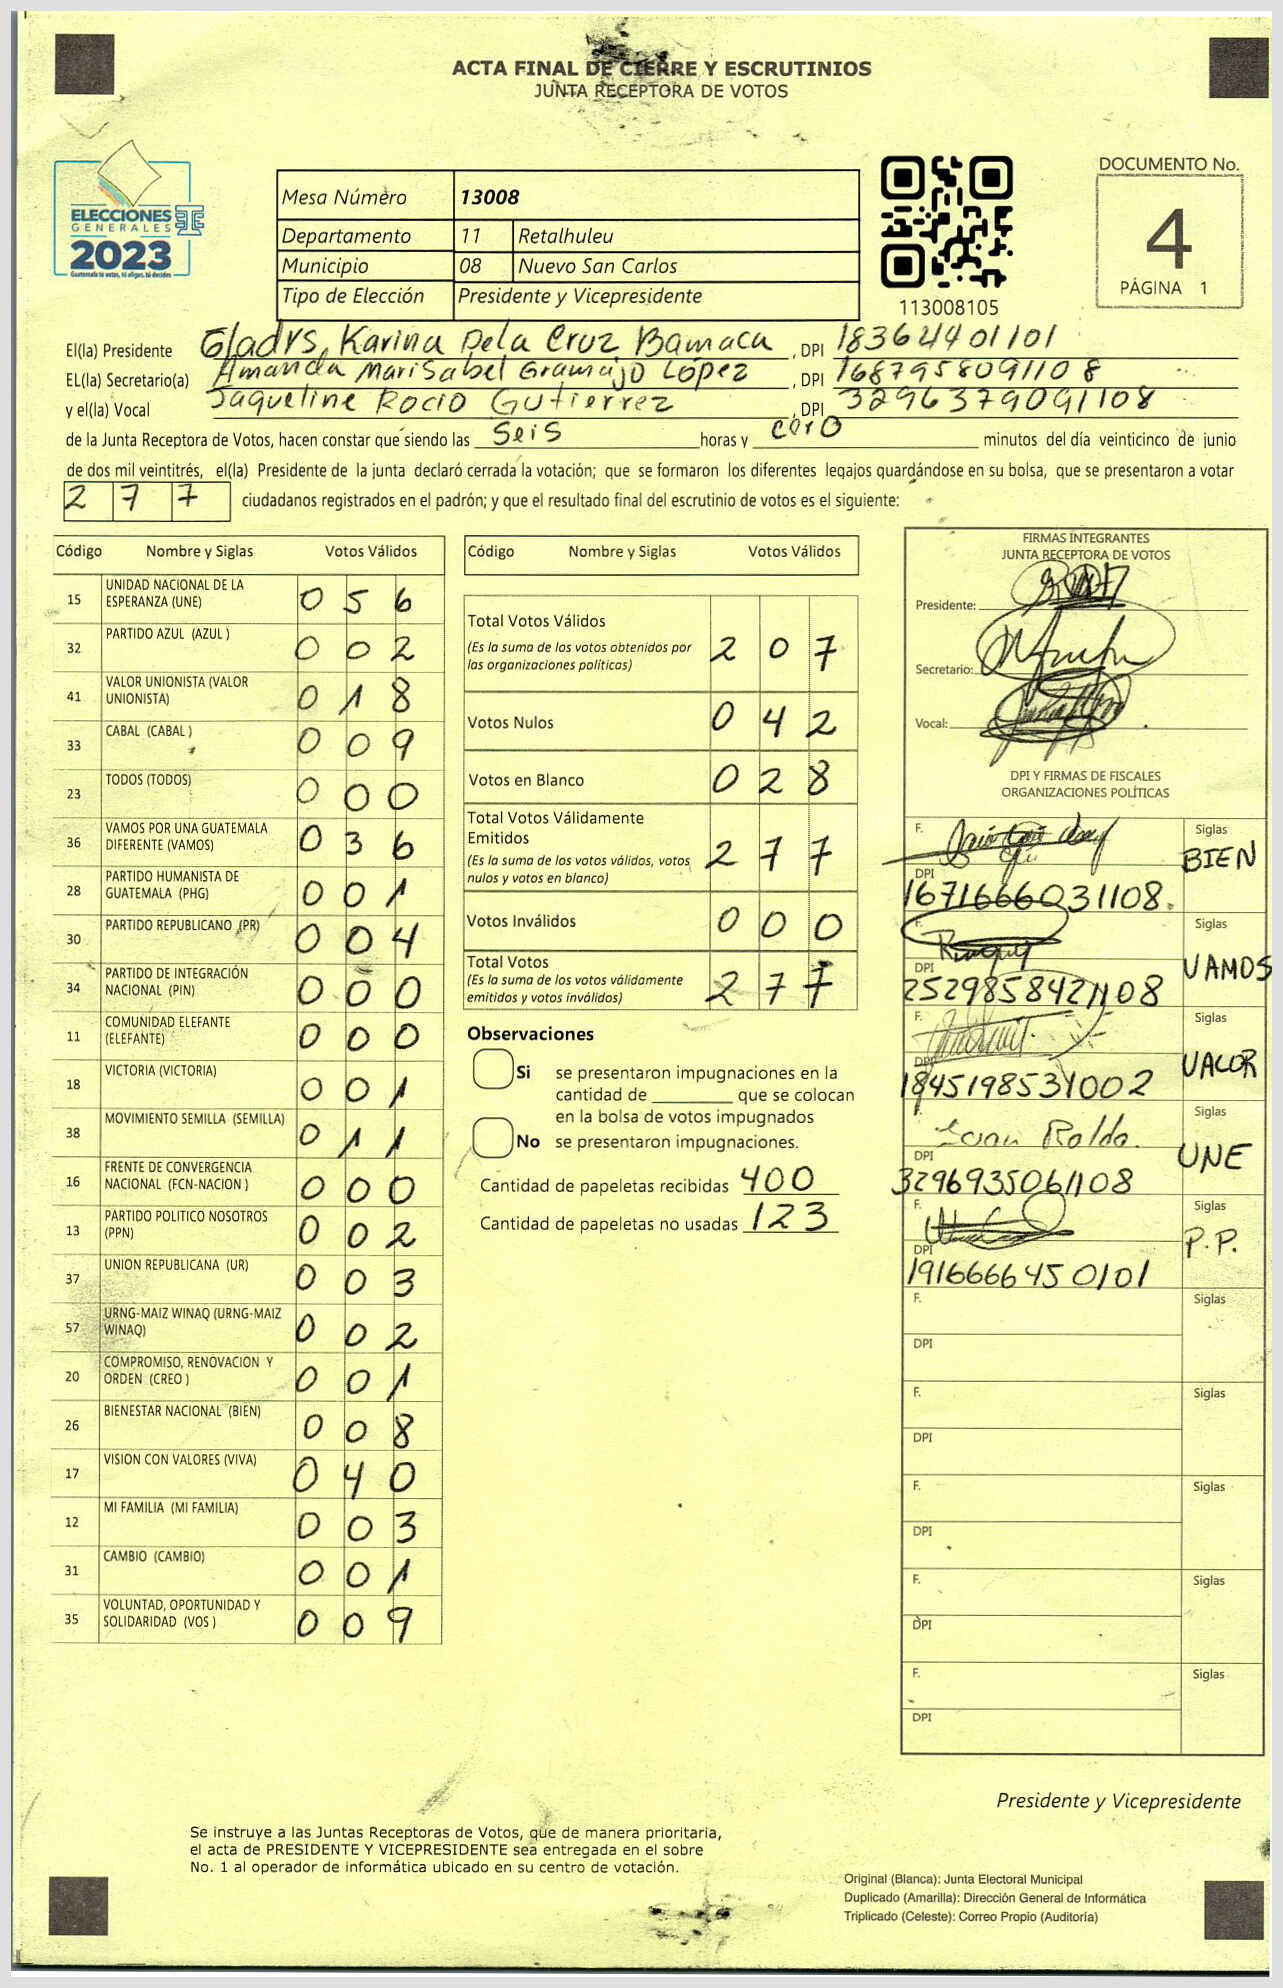 ACTA FINAL DE CIERRE Y ESCRUTINIOS
JUNTA RECEPTORA DE VOTOS
ELECCIONES
GENERALES
2023
Guatemala tu votas, tú eliges, tú decides
Mesa Número 13008
Departamento 11 Retalhuleu
Municipio 08 Nuevo San Carlos
Tipo de Elección Presidente y Vicepresidente
113008105
DOCUMENTO No.
4
PÁGINA 1
El(la) Presidente Gladys Karina De la Cruz Bamaca, DPI 183624401101
EL(la) Secretario(a) Amanda Marisabel Gramajo López, DPI 1687958091108
y el(la) Vocal Jaqueline Rocio Gutierrez, DPI 3296379091108
de la Junta Receptora de Votos, hacen constar que siendo las seis horas y cero minutos del día veinticinco de junio
de dos mil veintitrés, el(la) Presidente de la junta declaró cerrada la votación; que se formaron los diferentes legajos guardándose en su bolsa, que se presentaron a votar
277 ciudadanos registrados en el padrón; y que el resultado final del escrutinio de votos es el siguiente:
Código Nombre y Siglas Votos Válidos
15 UNIDAD NACIONAL DE LA ESPERANZA (UNE) 056
32 PARTIDO AZUL (AZUL ) 002
41 VALOR UNIONISTA (VALOR UNIONISTA) 018
33 CABAL (CABAL ) 009
23 TODOS (TODOS) 000
36 VAMOS POR UNA GUATEMALA DIFERENTE (VAMOS) 036
28 PARTIDO HUMANISTA DE GUATEMALA (PHG) 001
30 PARTIDO REPUBLICANO (PR) 004
34 PARTIDO DE INTEGRACIÓN NACIONAL (PIN) 000
11 COMUNIDAD ELEFANTE (ELEFANTE) 000
18 VICTORIA (VICTORIA) 001
38 MOVIMIENTO SEMILLA (SEMILLA) 011
16 FRENTE DE CONVERGENCIA NACIONAL (FCN-NACION ) 000
13 PARTIDO POLITICO NOSOTROS (PPN) 002
37 UNION REPUBLICANA (UR) 003
57 URNG-MAIZ WINAQ (URNG-MAIZ WINAQ) 002
20 COMPROMISO, RENOVACION Y ORDEN (CREO ) 001
26 BIENESTAR NACIONAL (BIEN) 008
17 VISION CON VALORES (VIVA) 040
12 MI FAMILIA (MI FAMILIA) 003
31 CAMBIO (CAMBIO) 001
35 VOLUNTAD, OPORTUNIDAD Y SOLIDARIDAD (VOS ) 009
Código Nombre y Siglas Votos Válidos
Total Votos Válidos 207
(Es la suma de los votos obtenidos por
las organizaciones políticas)
Votos Nulos 042
Votos en Blanco 028
Total Votos Válidamente
Emitidos 277
(Es la suma de los votos válidos, votos
nulos y votos en blanco)
Votos Inválidos 000
Total Votos 277
(Es la suma de los votos válidamente
emitidos y votos inválidos)
Observaciones
Si se presentaron impugnaciones en la
cantidad de ________ que se colocan
en la bolsa de votos impugnados
No se presentaron impugnaciones.
Cantidad de papeletas recibidas 400
Cantidad de papeletas no usadas 123
FIRMAS INTEGRANTES
JUNTA RECEPTORA DE VOTOS
Presidente:
Secretario:
Vocal:
DPI Y FIRMAS DE FISCALES
ORGANIZACIONES POLÍTICAS
F. Siglas BIEN
DPI 1671666031108
F. Siglas VAMOS
DPI 2529858421108
F. Siglas VALOR
DPI 1845198531002
F. Siglas UNE
DPI 3296935061108
F. Siglas P.P.
DPI 1916666450101
F. Siglas
DPI
F. Siglas
DPI
F. Siglas
DPI
F. Siglas
DPI
F. Siglas
DPI
Presidente y Vicepresidente
Se instruye a las Juntas Receptoras de Votos, que de manera prioritaria,
el acta de PRESIDENTE Y VICEPRESIDENTE sea entregada en el sobre
No. 1 al operador de informática ubicado en su centro de votación.
Original (Blanca): Junta Electoral Municipal
Duplicado (Amarilla): Dirección General de Informática
Triplicado (Celeste): Correo Propio (Auditoría)